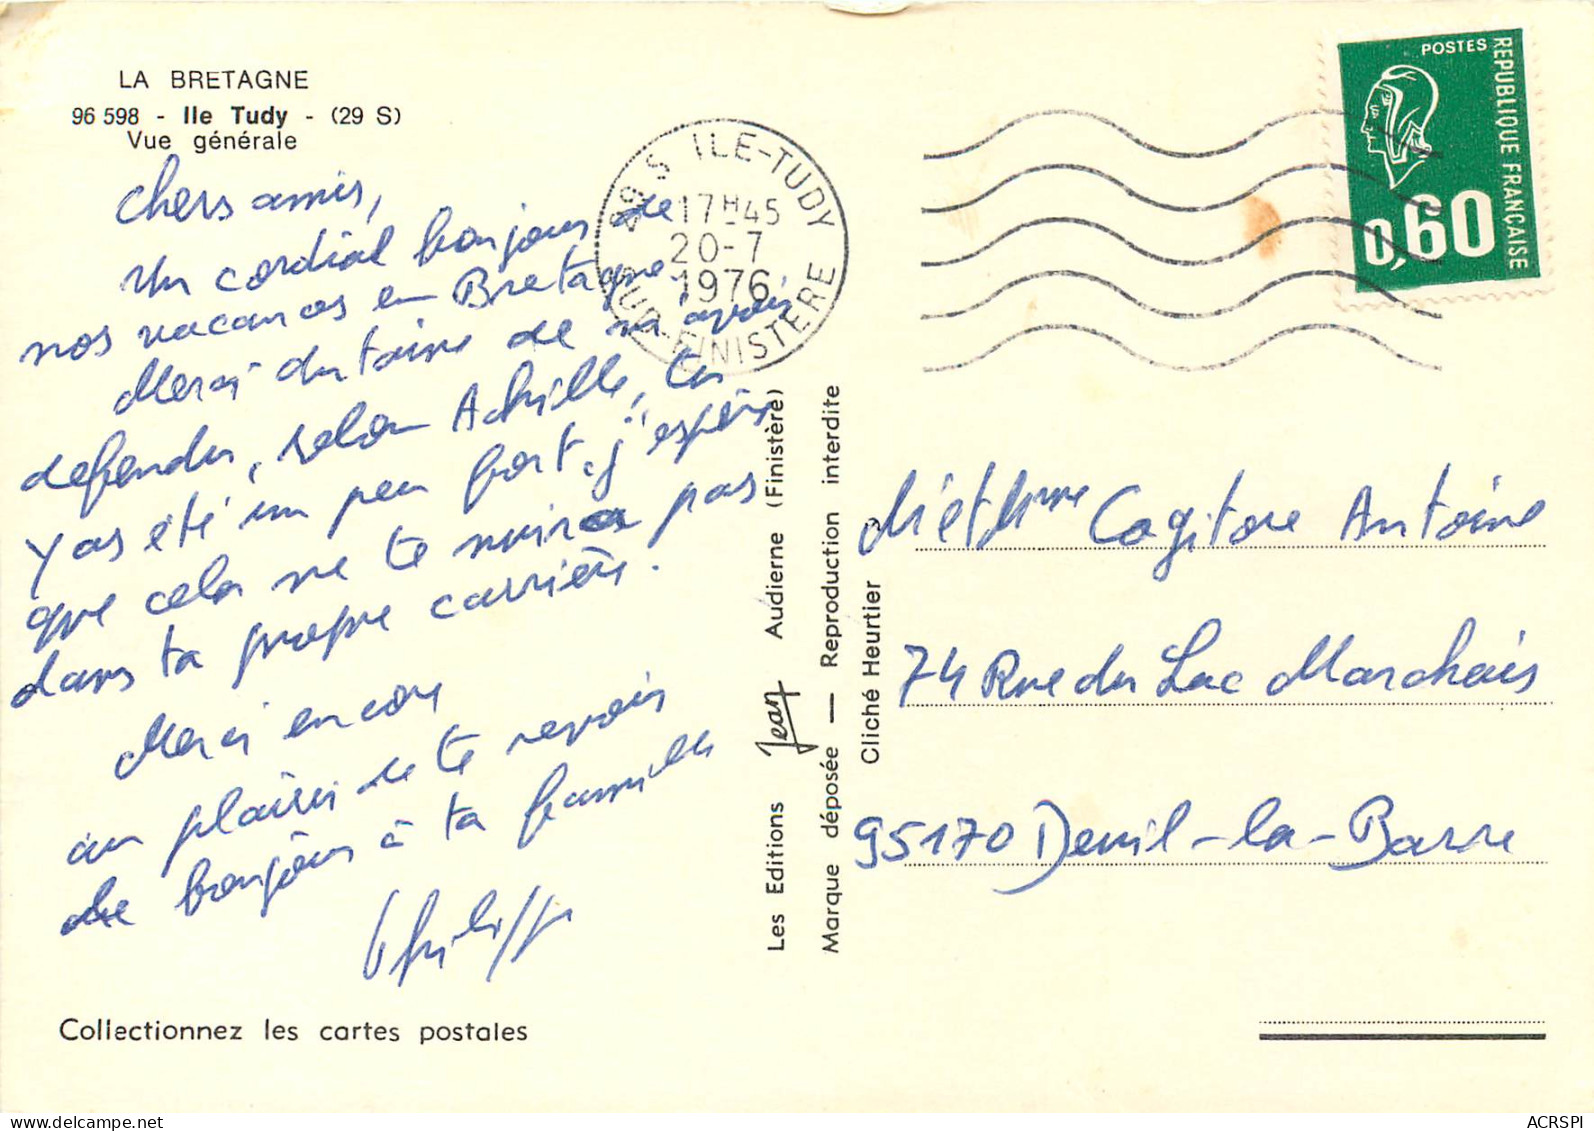 LA BRETAGNE
96 598 - Ile Tudy - (29 S)
Vue générale
Chers amis,
Un cordial bonjour de
nos vacances en Bretagne.
Merci Antoine de m'avoir
defendu, selon Achille, tu
y as été un peu fort, j'espère
que cela ne te nuira pas
dans ta propre carrière.
Merci encore
au plaisir de te revoir
le bonjour à ta famille
Philippe
Collectionnez les cartes postales
29 S ILE-TUDY
17H45
20-7
1976
SUD-FINISTERE
POSTES
REPUBLIQUE FRANÇAISE
0,60
Les Editions Jean Audierne (Finistère)
Marque déposée — Reproduction interdite
Cliché Heurtier
Cagitore Antoine
74 Rue du Lac Marchais
95170 Deuil-la-Barre
ACRSPI